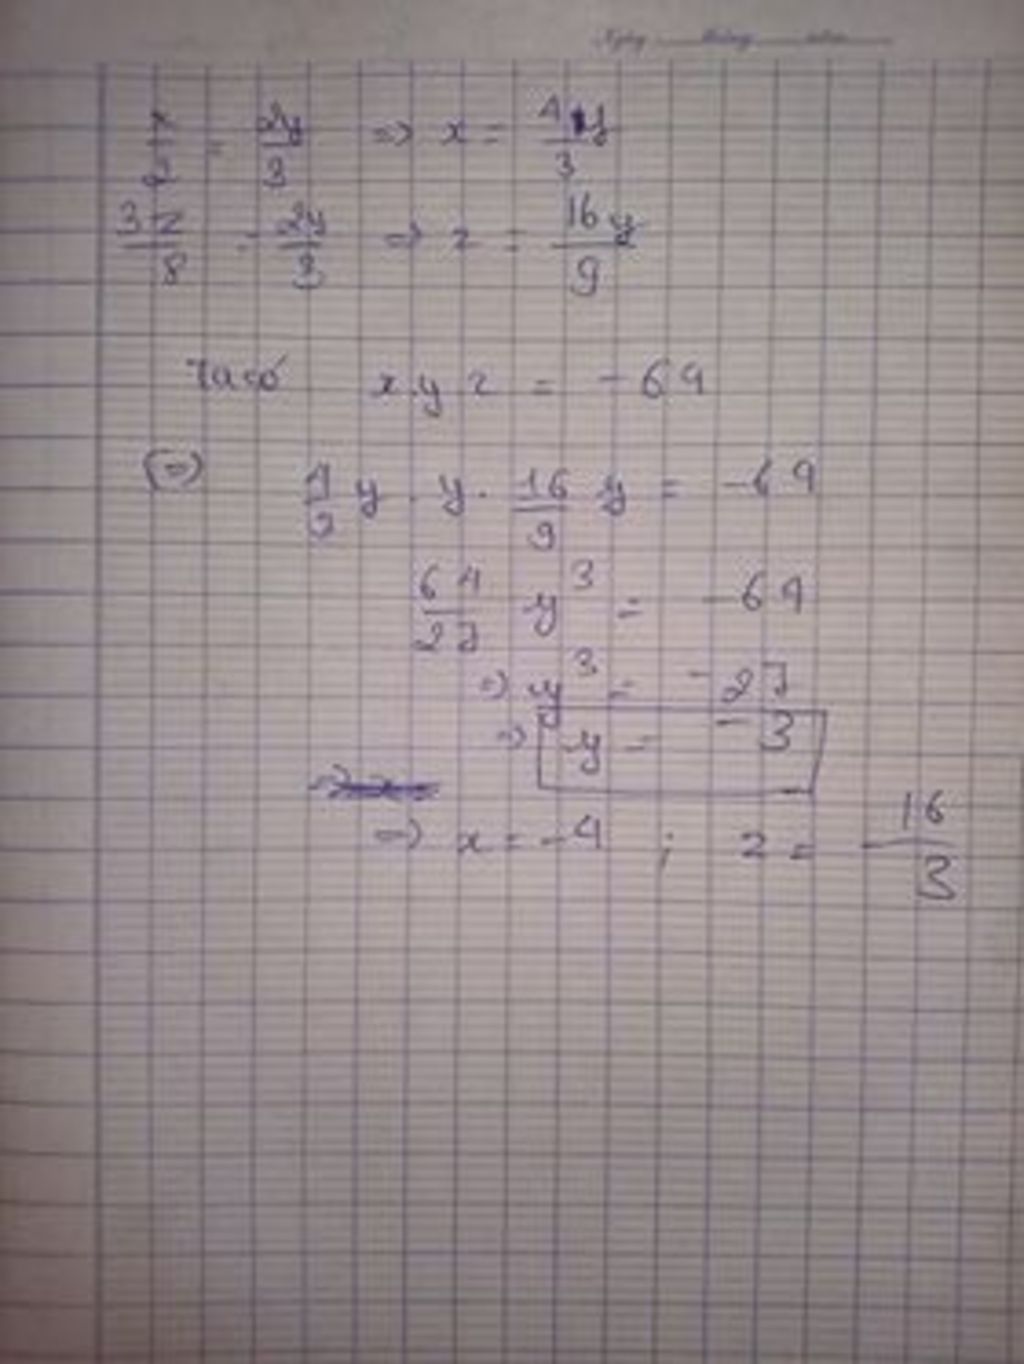 Ngày tháng năm
x/2 = 2y/3 => x = 4y/3
3z/8 = 2y/3 => z = 16y/9
Ta có x.y z = -64
(=) 4/3 y . y . 16/9 y = -64
64/27 y³ = -64
=> y³ = -27
=> y = -3
=> x = -4 ; z = -16/3